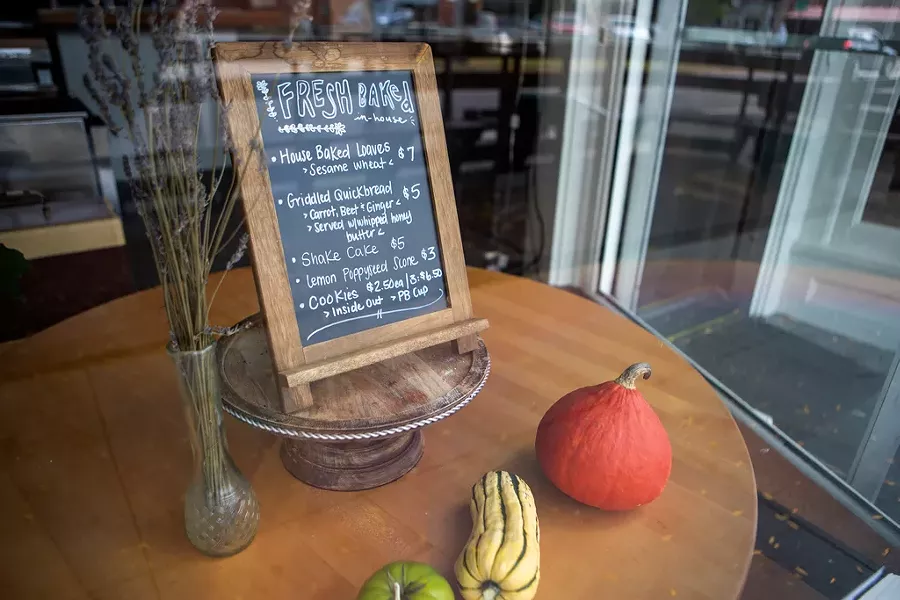 FRESH BAKed
in-house
• House Baked Loaves $7
> Sesame wheat <
• Griddled Quickbread $5
> Carrot, Beet & Ginger <
> Served w/whipped honey
butter <
• Shake Cake $5
• Lemon Poppyseed Scone $3
• Cookies $2.50ea | 3:$6.50
> Inside Out > PB Cup